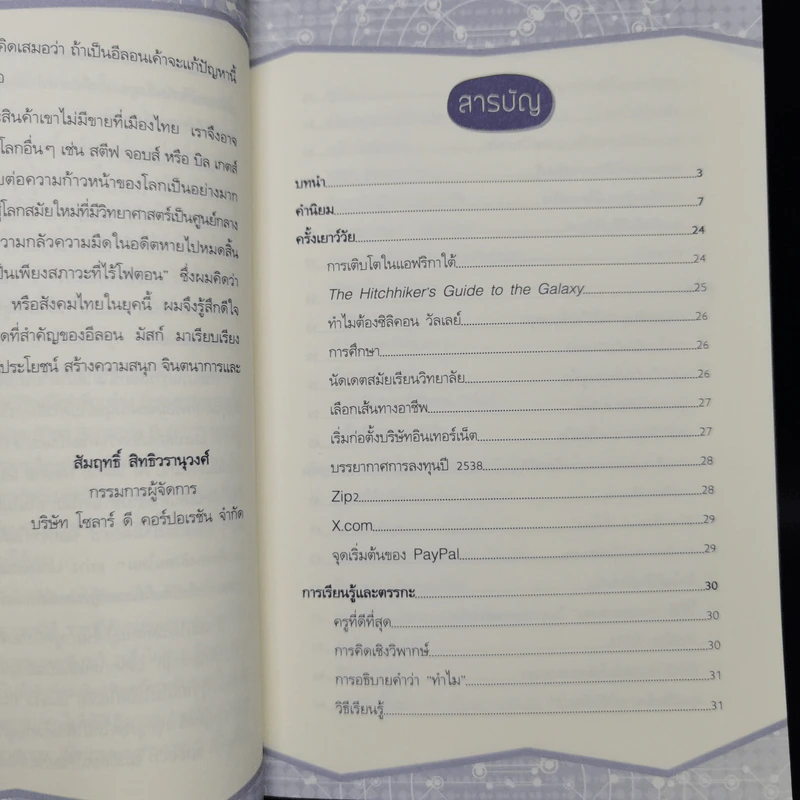 คิดเสมอว่า ถ้าเป็นอีลอนเค้าจะแก้ปัญหานี้
อ
ะสินค้าเขาไม่มีขายที่เมืองไทย เราจึงอาจ
โลกอื่นๆ เช่น สตีฟ จอบส์ หรือ บิล เกตส์
บต่อความก้าวหน้าของโลกเป็นอย่างมาก
ู่โลกสมัยใหม่ที่มีวิทยาศาสตร์เป็นศูนย์กลาง
ความกลัวความมืดในอดีตหายไปหมดสิ้น
ป็นเพียงสภาวะที่ไร้โฟตอน" ซึ่งผมคิดว่า
หรือสังคมไทยในยุคนี้ ผมจึงรู้สึกดีใจ
ดที่สำคัญของอีลอน มัสก์ มาเรียบเรียง
ประโยชน์ สร้างความสนุก จินตนาการและ
สัมฤทธิ์ สิทธิวรานุวงศ์
กรรมการผู้จัดการ
บริษัท โซลาร์ ดี คอร์ปอเรชัน จำกัด
สารบัญ
บทนำ 3
คำนิยม 7
ครั้งเยาว์วัย 24
การเติบโตในแอฟริกาใต้ 24
The Hitchhiker's Guide to the Galaxy 25
ทำไมต้องซิลิคอน วัลเลย์ 26
การศึกษา 26
นัดเดตสมัยเรียนวิทยาลัย 26
เลือกเส้นทางอาชีพ 27
เริ่มก่อตั้งบริษัทอินเทอร์เน็ต 27
บรรยากาศการลงทุนปี 2538 28
Zip2 28
X.com 29
จุดเริ่มต้นของ PayPal 29
การเรียนรู้และตรรกะ 30
ครูที่ดีที่สุด 30
การคิดเชิงวิพากษ์ 30
การอธิบายคำว่า "ทำไม" 31
วิธีเรียนรู้ 31